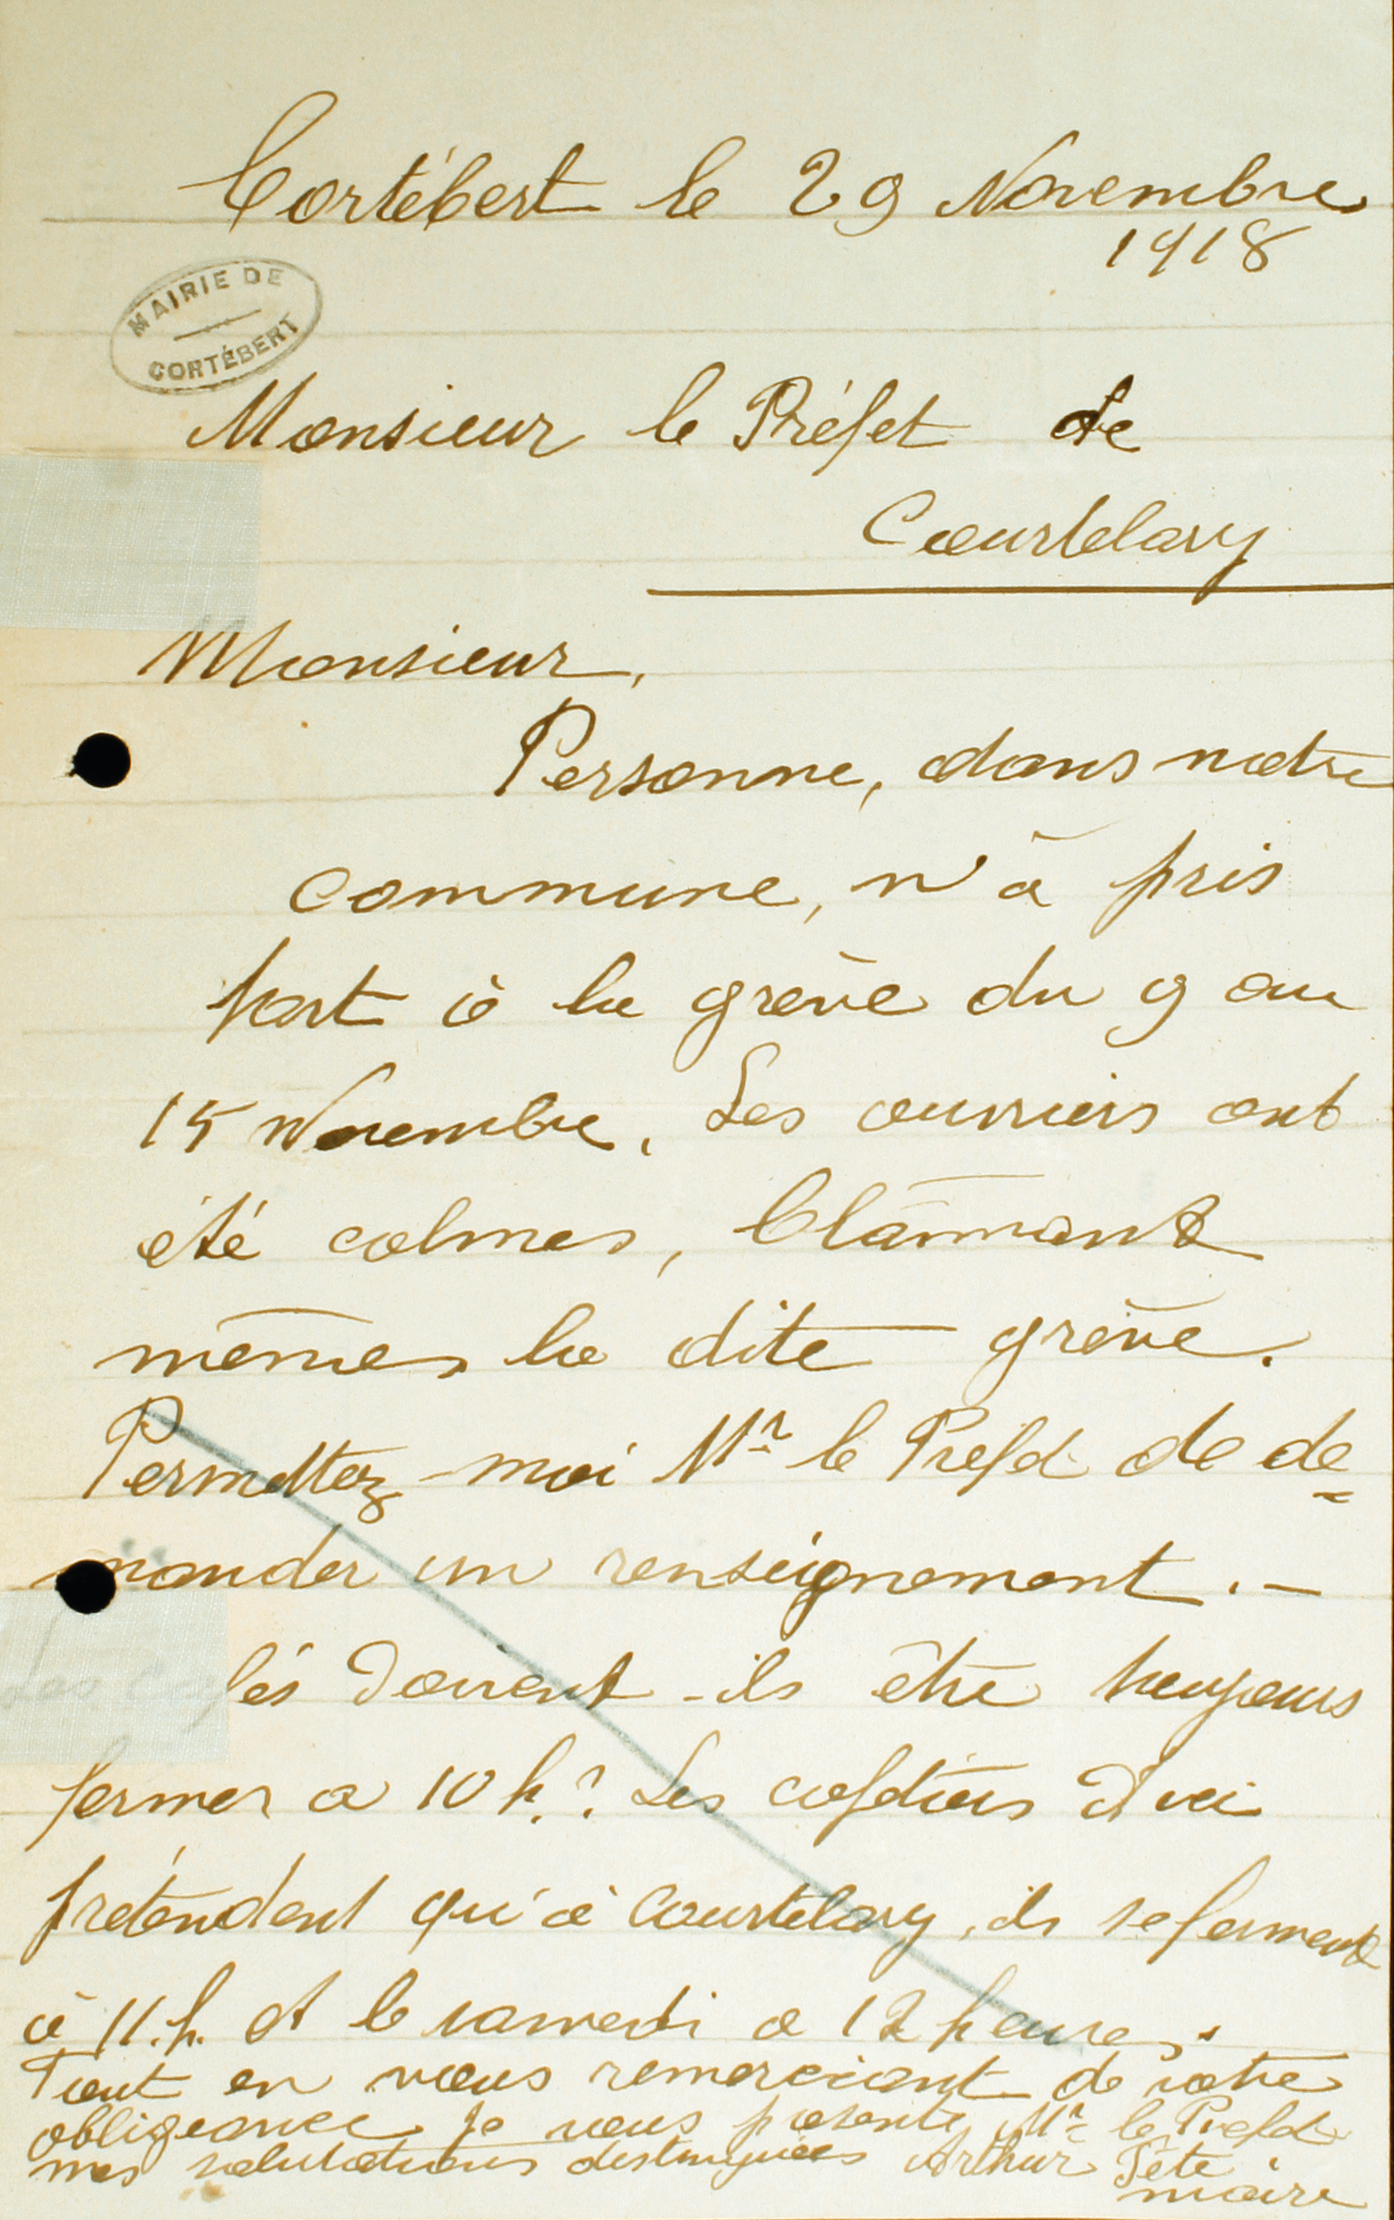 Cortébert le 29 Novembre
1918
MAIRIE DE
CORTÉBERT
Monsieur le Préfet de
Courtelary
Monsieur,
Personne, dans notre
commune, n'a pris
part à la grève du 9 au
15 Novembre. Les ouvriers ont
été calmes, blâmant
mêmes la dite grève.
Permettez-moi Mr le Prefet de de=
mander un renseignement. —
Les cafés doivent-ils être toujours
fermer a 10 h.? Les cafetiers d'ici
prétendent qu'à Courtelary, ils se ferment
à 11.h. et le samedi a 12 heures.
Tout en vous remerciant de votre
obligeance je vous présente Mr le Prefet
mes salutations distinguées Arthur Tête
maire